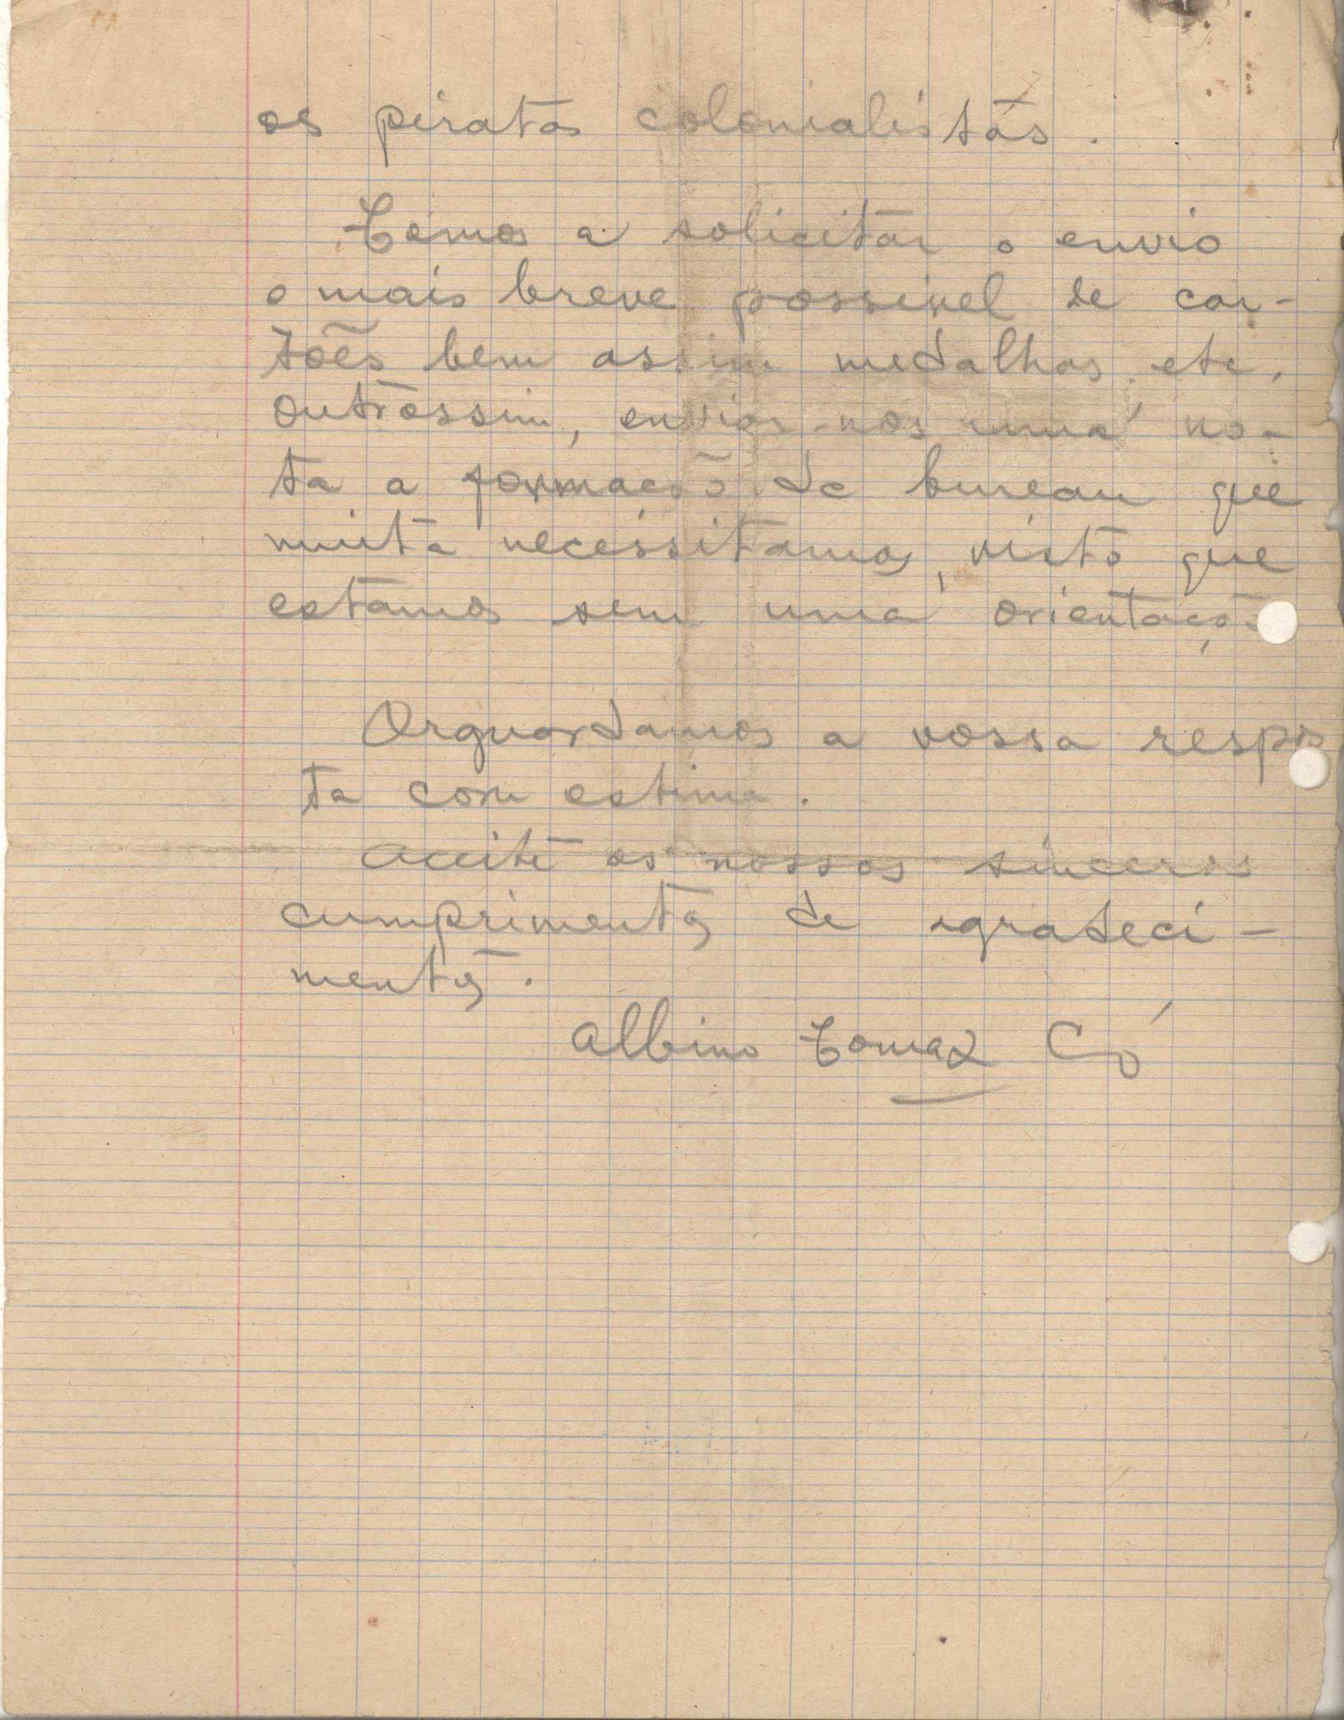 os piratas colonialistas.
Temos a solicitar o envio
o mais breve possivel de car-
tões bem assim medalhas, etc.
Outrossim, enviar-nos uma no-
ta a formação de bureau que
muito necessitamos, visto que
estamos sem uma orientação
Orguardamos a vossa respos
ta com estima.
Aceite os nossos sinceros
cumprimentos de agradeci-
mentos.
Albino Tomaz Có